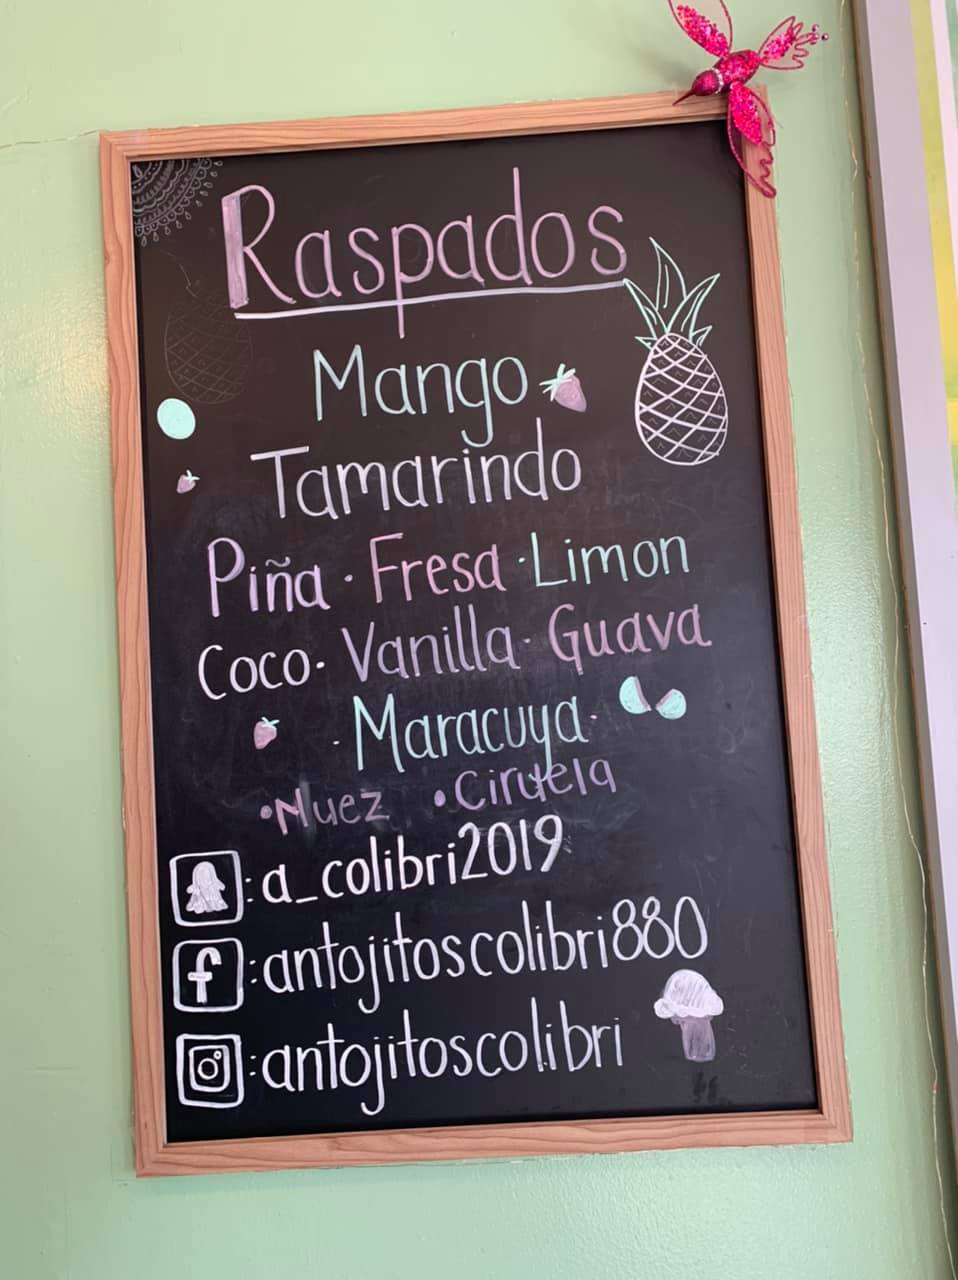 Raspados
Mango
Tamarindo
Piña · Fresa · Limon
Coco · Vanilla · Guava
· Maracuya ·
• Nuez • Ciruela
: a_colibri2019
f : antojitoscolibri880
: antojitoscolibri